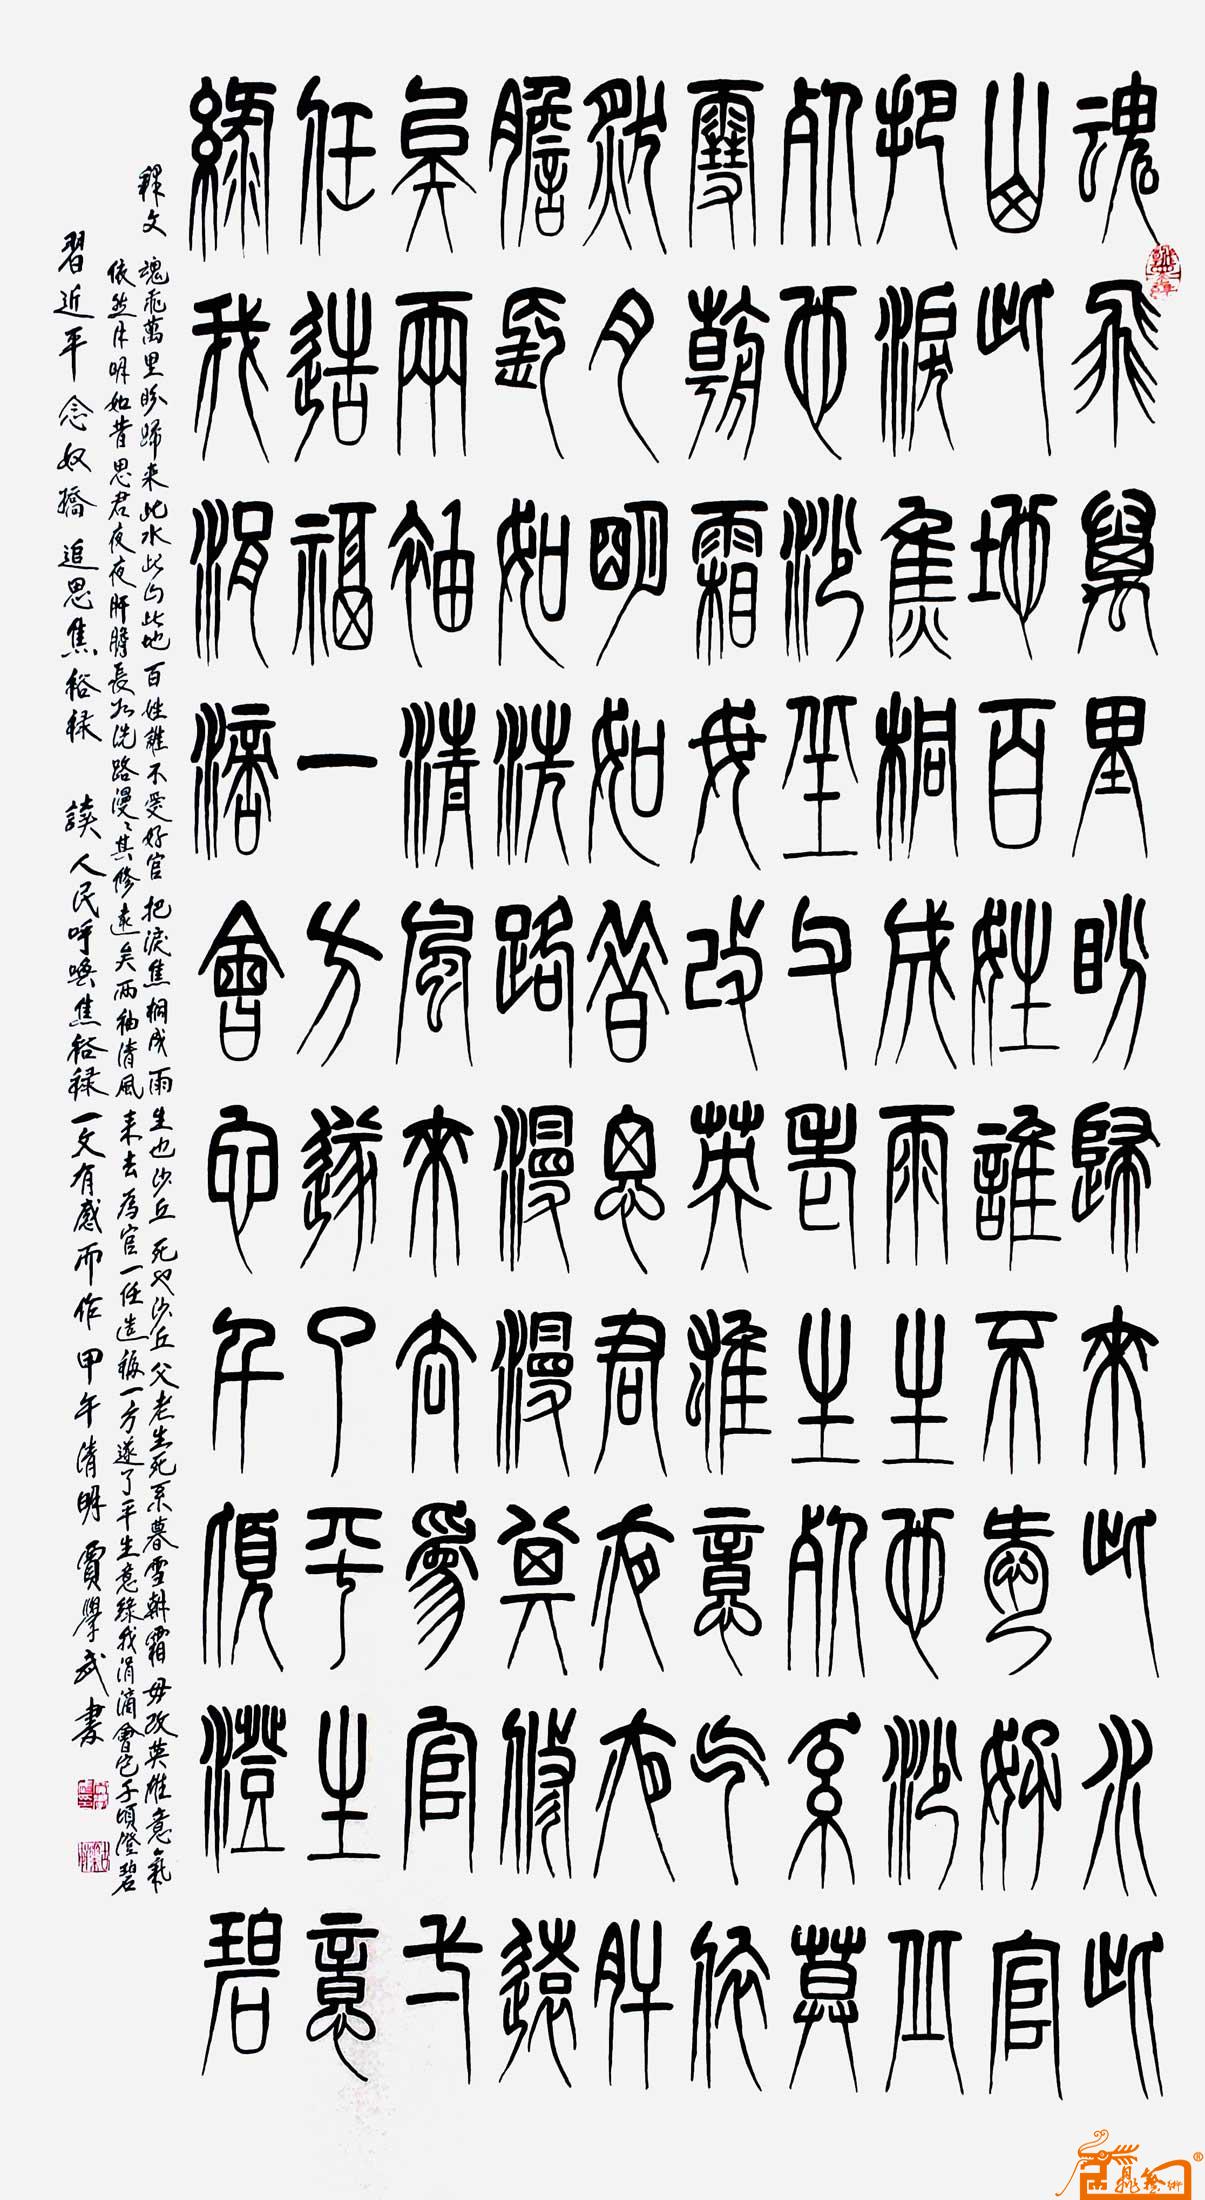 魂飛萬里盼歸來此水此
山此地百姓誰不愛好官
把淚焦桐成雨生也沙丘
死也沙丘父老生死系莫
雪朝霜毋改英雄意气依
然月明如昔思君夜夜肝
膽長如洗路漫漫其修遠
矣兩袖清風來去為官弌
任造福一方遂了平生意
綠我涓滴會它千頃澄碧
釋文 魂飛萬里盼歸来此水此山此地百姓誰不愛好官把淚焦桐成雨生也沙丘死也沙丘父老生死系暮雪朝霜毋改英雄意氣
依然月明如昔思君夜夜肝膽長如洗路漫漫其修遠矣两袖清風来去為官一任造福一方遂了平生意綠我涓滴會它千頃澄碧
習近平念奴嬌追思焦裕禄 讀人民呼喚焦裕禄一文有感而作甲午清明賈學武書
鼎藝術®